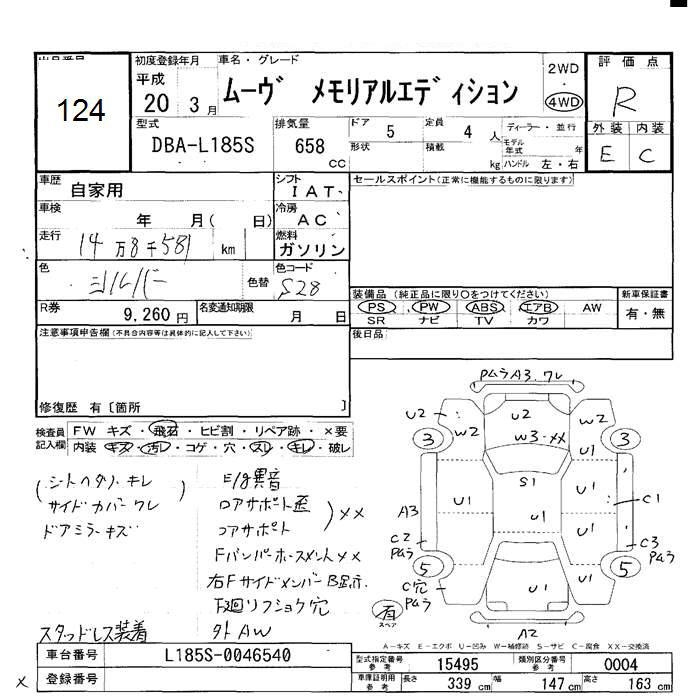 出品番号
124
初度登録年月
平成
20 3月
車名・グレード
ムーヴ メモリアルエディション
2WD
・
4WD
評価点
R
外装 内装
E C
型式
DBA-L185S
排気量
658
CC
ドア 5
形状
定員 4 人
積載 kg
ディーラー・並行
モデル年式 年
ハンドル 左・右
車歴 自家用
シフト
IAT
セールスポイント(正常に機能するものに限ります)
車検 年 月( 日)
冷房
AC
走行 14万8千581 km
燃料
ガソリン
色 シルバー 色替
色コード
S28
R券 9,260円
名変通知期限 月 日
装備品(純正品に限り○をつけてください)
PS PW ABS エアB AW
SR ナビ TV カワ
新車保証書
有・無
注意事項申告欄(不具合内容等は具体的に記入して下さい)
後日品
修復歴 有〔箇所 〕
検査員記入欄
FW キズ・飛石・ヒビ割・リペア跡・×要
内装 キズ・汚レ・コゲ・穴・スレ・キレ・破レ
(シートヘタリ・キレ
サイドカバーワレ)
ドアミラーキズ
E/g異音
ロアサポート歪
コアサポート
)××
Fバンパーホースメント××
右FサイドメンバーB
下廻リフショク穴
スタッドレス装着
外AW
PムラA3.ワレ
U2
W2
U2
W3・××
W2
3
3
S1
U1
U1
U1
U1
C1
A3
C2
Pムラ
U1
C3
Pムラ
5
5
C穴
Pムラ
U1
U1
有
スペア
A2
A-キズ E-エクボ U-凹み W-補修跡 S-サビ C-腐食 XX-交換済
車台番号 L185S-0046540
登録番号
型式指定番号
参考
15495
類別区分番号
参考
0004
車庫証明用
参考
長さ 339 cm 幅 147 cm 高さ 163 cm
×